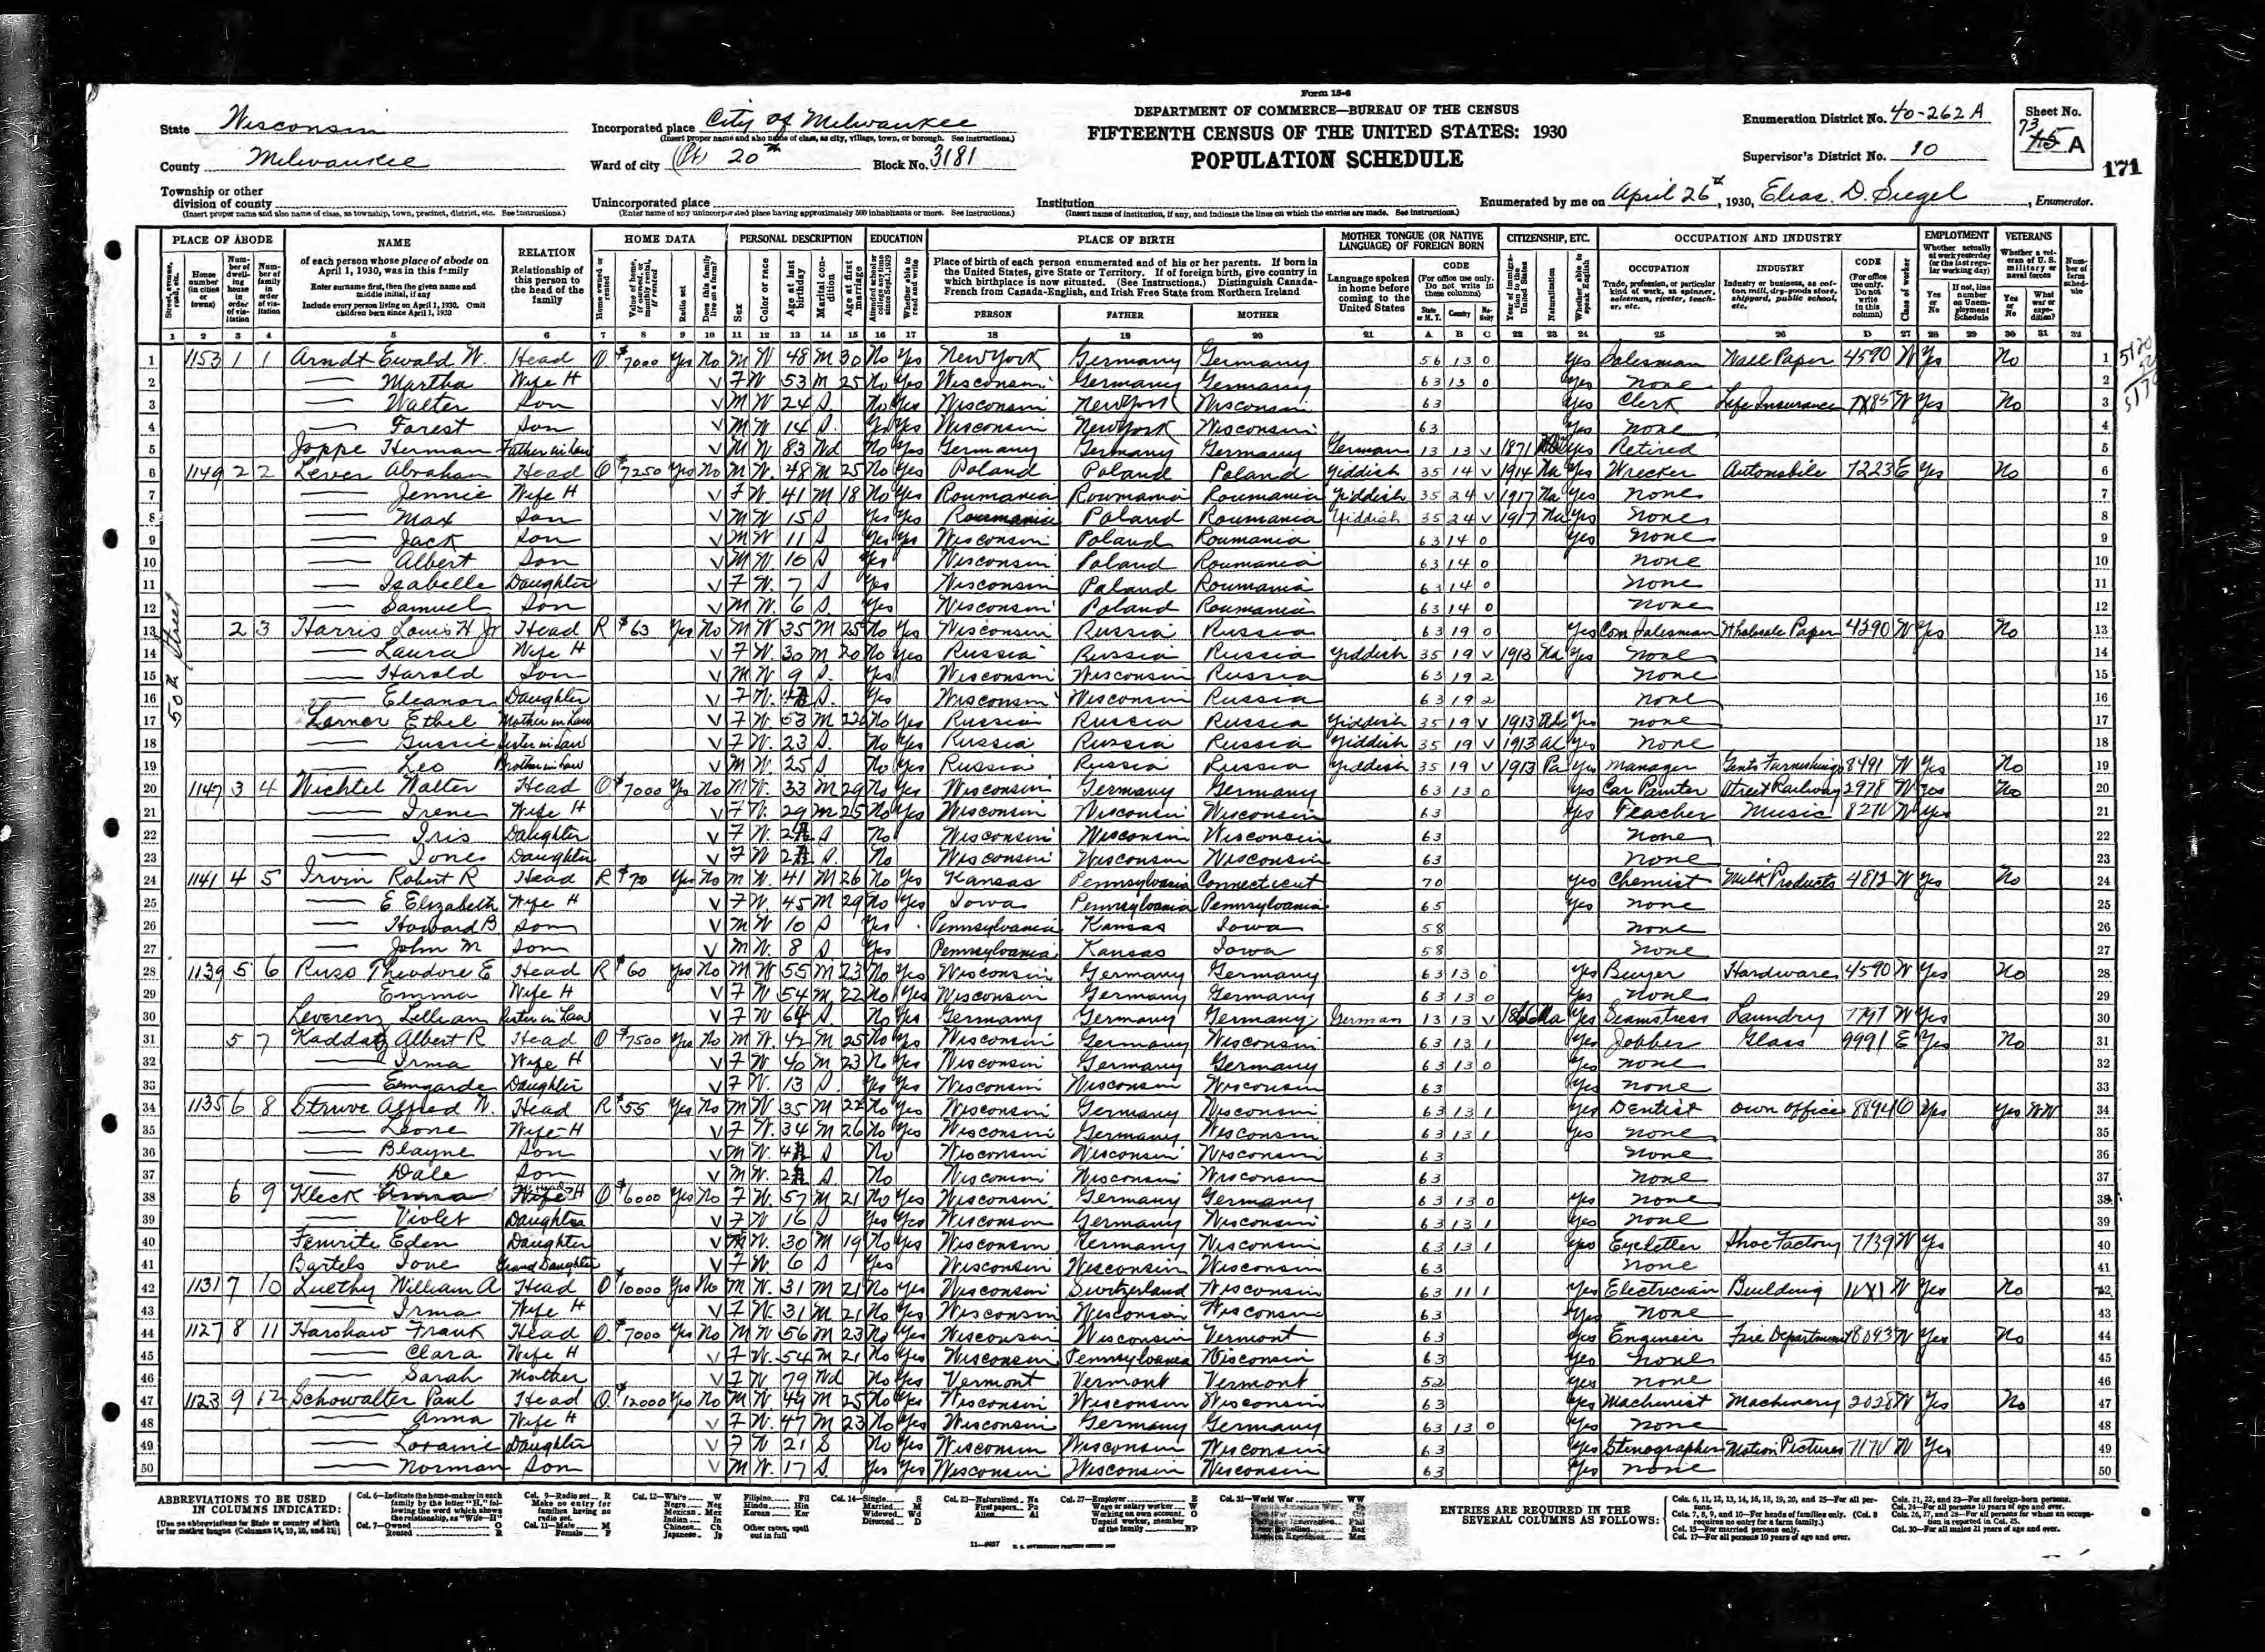 Form 15-6
DEPARTMENT OF COMMERCE—BUREAU OF THE CENSUS
FIFTEENTH CENSUS OF THE UNITED STATES: 1930
POPULATION SCHEDULE
State Wisconsin
County Milwaukee
Township or other division of county
(Insert proper name and also name of class, as township, town, precinct, district, etc. See instructions.)
Incorporated place City of Milwaukee
(Insert proper name and also name of class, as city, village, town, or borough. See instructions.)
Ward of city (Pt) 20th Block No. 3181
Unincorporated place
(Enter name of any unincorporated place having approximately 500 inhabitants or more. See instructions.)
Institution
(Insert name of institution, if any, and indicate the lines on which the entries are made. See instructions.)
Enumeration District No. 40-262 A
Supervisor's District No. 10
Sheet No.
A
171
Enumerated by me on April 26th, 1930, Elias. D. Siegel, Enumerator.
PLACE OF ABODE NAME RELATION HOME DATA PERSONAL DESCRIPTION EDUCATION PLACE OF BIRTH MOTHER TONGUE (OR NATIVE LANGUAGE) OF FOREIGN BORN CITIZENSHIP, ETC. OCCUPATION AND INDUSTRY EMPLOYMENT VETERANS
of each person whose place of abode on April 1, 1930, was in this family
Enter surname first, then the given name and middle initial, if any
Include every person living on April 1, 1930. Omit children born since April 1, 1930
Relationship of this person to the head of the family
Place of birth of each person enumerated and of his or her parents. If born in the United States, give State or Territory. If of foreign birth, give country in which birthplace is now situated. (See Instructions.) Distinguish Canada-French from Canada-English, and Irish Free State from Northern Ireland
PERSON FATHER MOTHER
Language spoken in home before coming to the United States
CODE (For office use only. Do not write in these columns)
OCCUPATION Trade, profession, or particular kind of work, as spinner, salesman, riveter, teacher, etc.
INDUSTRY Industry or business, as cotton mill, dry-goods store, shipyard, public school, etc.
1 2 3 4 5 6 7 8 9 10 11 12 13 14 15 16 17 18 19 20 21 A B C 22 23 24 25 26 D 27 28 29 30 31 32
50th Street
1 1153 1 1 Arndt Ewald W. Head O $7000 Yes No M W 48 M 30 No Yes New York Germany Germany 56 13 0 Yes Salesman Wall Paper 4590 W Yes No 1
2 — Martha Wife H V F W 53 M 25 No Yes Wisconsin Germany Germany 63 13 0 Yes None 2
3 — Walter Son V M W 24 S No Yes Wisconsin New York Wisconsin 63 Yes Clerk Life Insurance W Yes No 3
4 — Forest Son V M W 14 S Yes Yes Wisconsin New York Wisconsin 63 Yes None 4
5 Joppe Herman Father in Law V M W 83 Wd No Yes Germany Germany Germany German 13 13 V 1871 Yes Retired 5
6 1149 2 2 Lever Abraham Head O $7250 Yes No M W 48 M 25 No Yes Poland Poland Poland Yiddish 35 14 V 1914 Na Yes Wrecker Automobile 7223 E Yes No 6
7 — Jennie Wife H V F W 41 M 18 No Yes Roumania Roumania Roumania Yiddish 35 24 V 1917 Na Yes None 7
8 — Max Son V M W 15 S Yes Yes Roumania Poland Roumania Yiddish 35 24 V 1917 Na Yes None 8
9 — Jack Son V M W 11 S Yes Yes Wisconsin Poland Roumania 63 14 0 Yes None 9
10 — Albert Son V M W 10 S Yes Wisconsin Poland Roumania 63 14 0 None 10
11 — Isabelle Daughter V F W 7 S Yes Wisconsin Poland Roumania 63 14 0 None 11
12 — Samuel Son V M W 6 S Yes Wisconsin Poland Roumania 63 14 0 None 12
13 2 3 Harris Louis H Jr Head R $63 Yes No M W 35 M 25 No Yes Wisconsin Russia Russia 63 19 0 Yes Com Salesman Wholesale Paper 4390 W Yes No 13
14 — Laura Wife H V F W 30 M 20 No Yes Russia Russia Russia Yiddish 35 19 V 1913 Na Yes None 14
15 — Harold Son V M W 9 S Yes Wisconsin Wisconsin Russia 63 19 2 None 15
16 — Eleanor Daughter V F W S Yes Wisconsin Wisconsin Russia 63 19 2 None 16
17 Lerner Ethel Mother in Law V F W 53 M 22 No Yes Russia Russia Russia Yiddish 35 19 V 1913 Yes None 17
18 — Gussie Sister in Law V F W 23 S No Yes Russia Russia Russia Yiddish 35 19 V 1913 Al Yes None 18
19 — Leo Brother in Law V M W 25 S No Yes Russia Russia Russia Yiddish 35 19 V 1913 Pa Yes Manager Gents Furnishings 8491 W Yes No 19
20 1147 3 4 Wichtel Walter Head O $7000 Yes No M W 33 M 29 No Yes Wisconsin Germany Germany 63 13 0 Yes Car Painter Street Railway 2978 W Yes No 20
21 — Irene Wife H V F W 29 M 25 No Yes Wisconsin Wisconsin Wisconsin 63 Yes Teacher Music W Yes 21
22 — Iris Daughter V F W S No Wisconsin Wisconsin Wisconsin 63 None 22
23 — Ione Daughter V F W S No Wisconsin Wisconsin Wisconsin 63 None 23
24 1141 4 5 Irvin Robert R Head R $70 Yes No M W 41 M 26 No Yes Kansas Pennsylvania Connecticut 70 Yes Chemist Milk Products 4812 W Yes No 24
25 — E Elizabeth Wife H V F W 45 M 29 No Yes Iowa Pennsylvania Pennsylvania 65 Yes None 25
26 — Howard B Son V M W 10 S Yes Pennsylvania Kansas Iowa 58 None 26
27 — John M Son V M W 8 S Yes Pennsylvania Kansas Iowa 58 None 27
28 1139 5 6 Russ Theodore E Head R $60 Yes No M W 55 M 23 No Yes Wisconsin Germany Germany 63 13 0 Yes Buyer Hardware 4590 W Yes No 28
29 Emma Wife H V F W 54 M 22 No Yes Wisconsin Germany Germany 63 13 0 Yes None 29
30 Leverenz Lillian Sister in Law V F W 64 S No Yes Germany Germany Germany German 13 13 V Na Yes Seamstress Laundry W Yes 30
31 5 7 Kaddatz Albert R Head O $7500 Yes No M W 42 M 25 No Yes Wisconsin Germany Wisconsin 63 13 1 Yes Jobber Glass 9991 E Yes No 31
32 — Irma Wife H V F W 40 M 23 No Yes Wisconsin Germany Germany 63 13 0 Yes None 32
33 — Emgarde Daughter V F W 13 S Yes Yes Wisconsin Wisconsin Wisconsin 63 Yes None 33
34 1135 6 8 Struve Alfred W. Head R $55 Yes No M W 35 M 22 No Yes Wisconsin Germany Wisconsin 63 13 1 Yes Dentist Own Office 8894 O Yes Yes WW 34
35 — Leone Wife-H V F W 34 M 26 No Yes Wisconsin Germany Wisconsin 63 13 1 Yes None 35
36 — Blayne Son V M W S No Wisconsin Wisconsin Wisconsin 63 None 36
37 — Dale Son V M W S No Wisconsin Wisconsin Wisconsin 63 None 37
38 6 9 Kleck Emma Wife H O $6000 Yes No F W 57 M 21 No Yes Wisconsin Germany Germany 63 13 0 Yes None 38
39 — Violet Daughter V F W 16 S Yes Yes Wisconsin Germany Wisconsin 63 13 1 Yes None 39
40 Femrite Eden Daughter V W 30 M 19 No Yes Wisconsin Germany Wisconsin 63 13 1 Yes Eyeletter Shoe Factory 7739 W Yes 40
41 Bartels Ione Grand Daughter V F W 6 S Yes Wisconsin Wisconsin Wisconsin 63 None 41
42 1131 7 10 Luethy William A Head O $10000 Yes No M W 31 M 21 No Yes Wisconsin Switzerland Wisconsin 63 11 1 Yes Electrician Building W Yes No 42
43 — Irma Wife H V F W 31 M 21 No Yes Wisconsin Wisconsin Wisconsin 63 Yes None 43
44 1127 8 11 Harshaw Frank Head O $7000 Yes No M W 56 M 23 No Yes Wisconsin Wisconsin Vermont 63 Yes Engineer Fire Department 8093 W Yes No 44
45 — Clara Wife H V F W 54 M 21 No Yes Wisconsin Pennsylvania Wisconsin 63 Yes None 45
46 — Sarah Mother V F W 79 Wd No Yes Vermont Vermont Vermont 52 Yes None 46
47 1123 9 12 Schowalter Paul Head O $12000 Yes No M W 49 M 25 No Yes Wisconsin Wisconsin Wisconsin 63 Yes Machinist Machinery 2028 W Yes No 47
48 — Anna Wife H V F W 47 M 23 No Yes Wisconsin Germany Germany 63 13 0 Yes None 48
49 — Loraine Daughter V F W 21 S No Yes Wisconsin Wisconsin Wisconsin 63 Yes Stenographer Motion Pictures W Yes 49
50 — Norman Son V M W 17 S Yes Yes Wisconsin Wisconsin Wisconsin 63 Yes None 50
ABBREVIATIONS TO BE USED IN COLUMNS INDICATED:
ENTRIES ARE REQUIRED IN THE SEVERAL COLUMNS AS FOLLOWS: